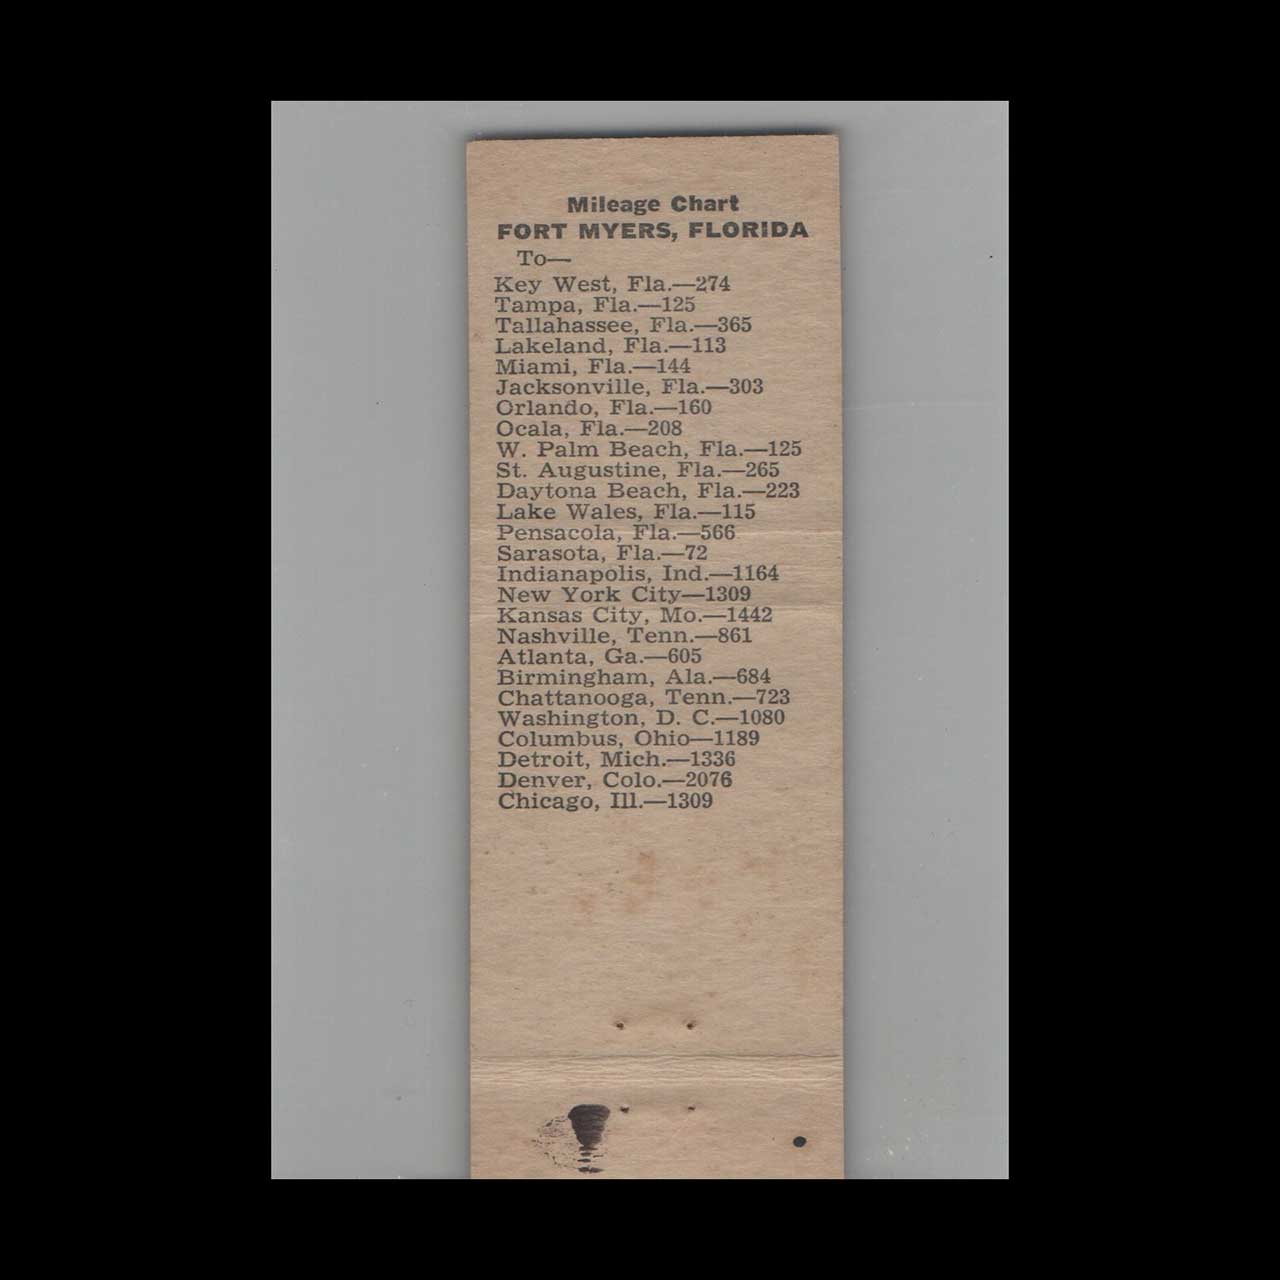 Mileage Chart
FORT MYERS, FLORIDA
To—
Key West, Fla.—274
Tampa, Fla.—125
Tallahassee, Fla.—365
Lakeland, Fla.—113
Miami, Fla.—144
Jacksonville, Fla.—303
Orlando, Fla.—160
Ocala, Fla.—208
W. Palm Beach, Fla.—125
St. Augustine, Fla.—265
Daytona Beach, Fla.—223
Lake Wales, Fla.—115
Pensacola, Fla.—566
Sarasota, Fla.—72
Indianapolis, Ind.—1164
New York City—1309
Kansas City, Mo.—1442
Nashville, Tenn.—861
Atlanta, Ga.—605
Birmingham, Ala.—684
Chattanooga, Tenn.—723
Washington, D. C.—1080
Columbus, Ohio—1189
Detroit, Mich.—1336
Denver, Colo.—2076
Chicago, Ill.—1309